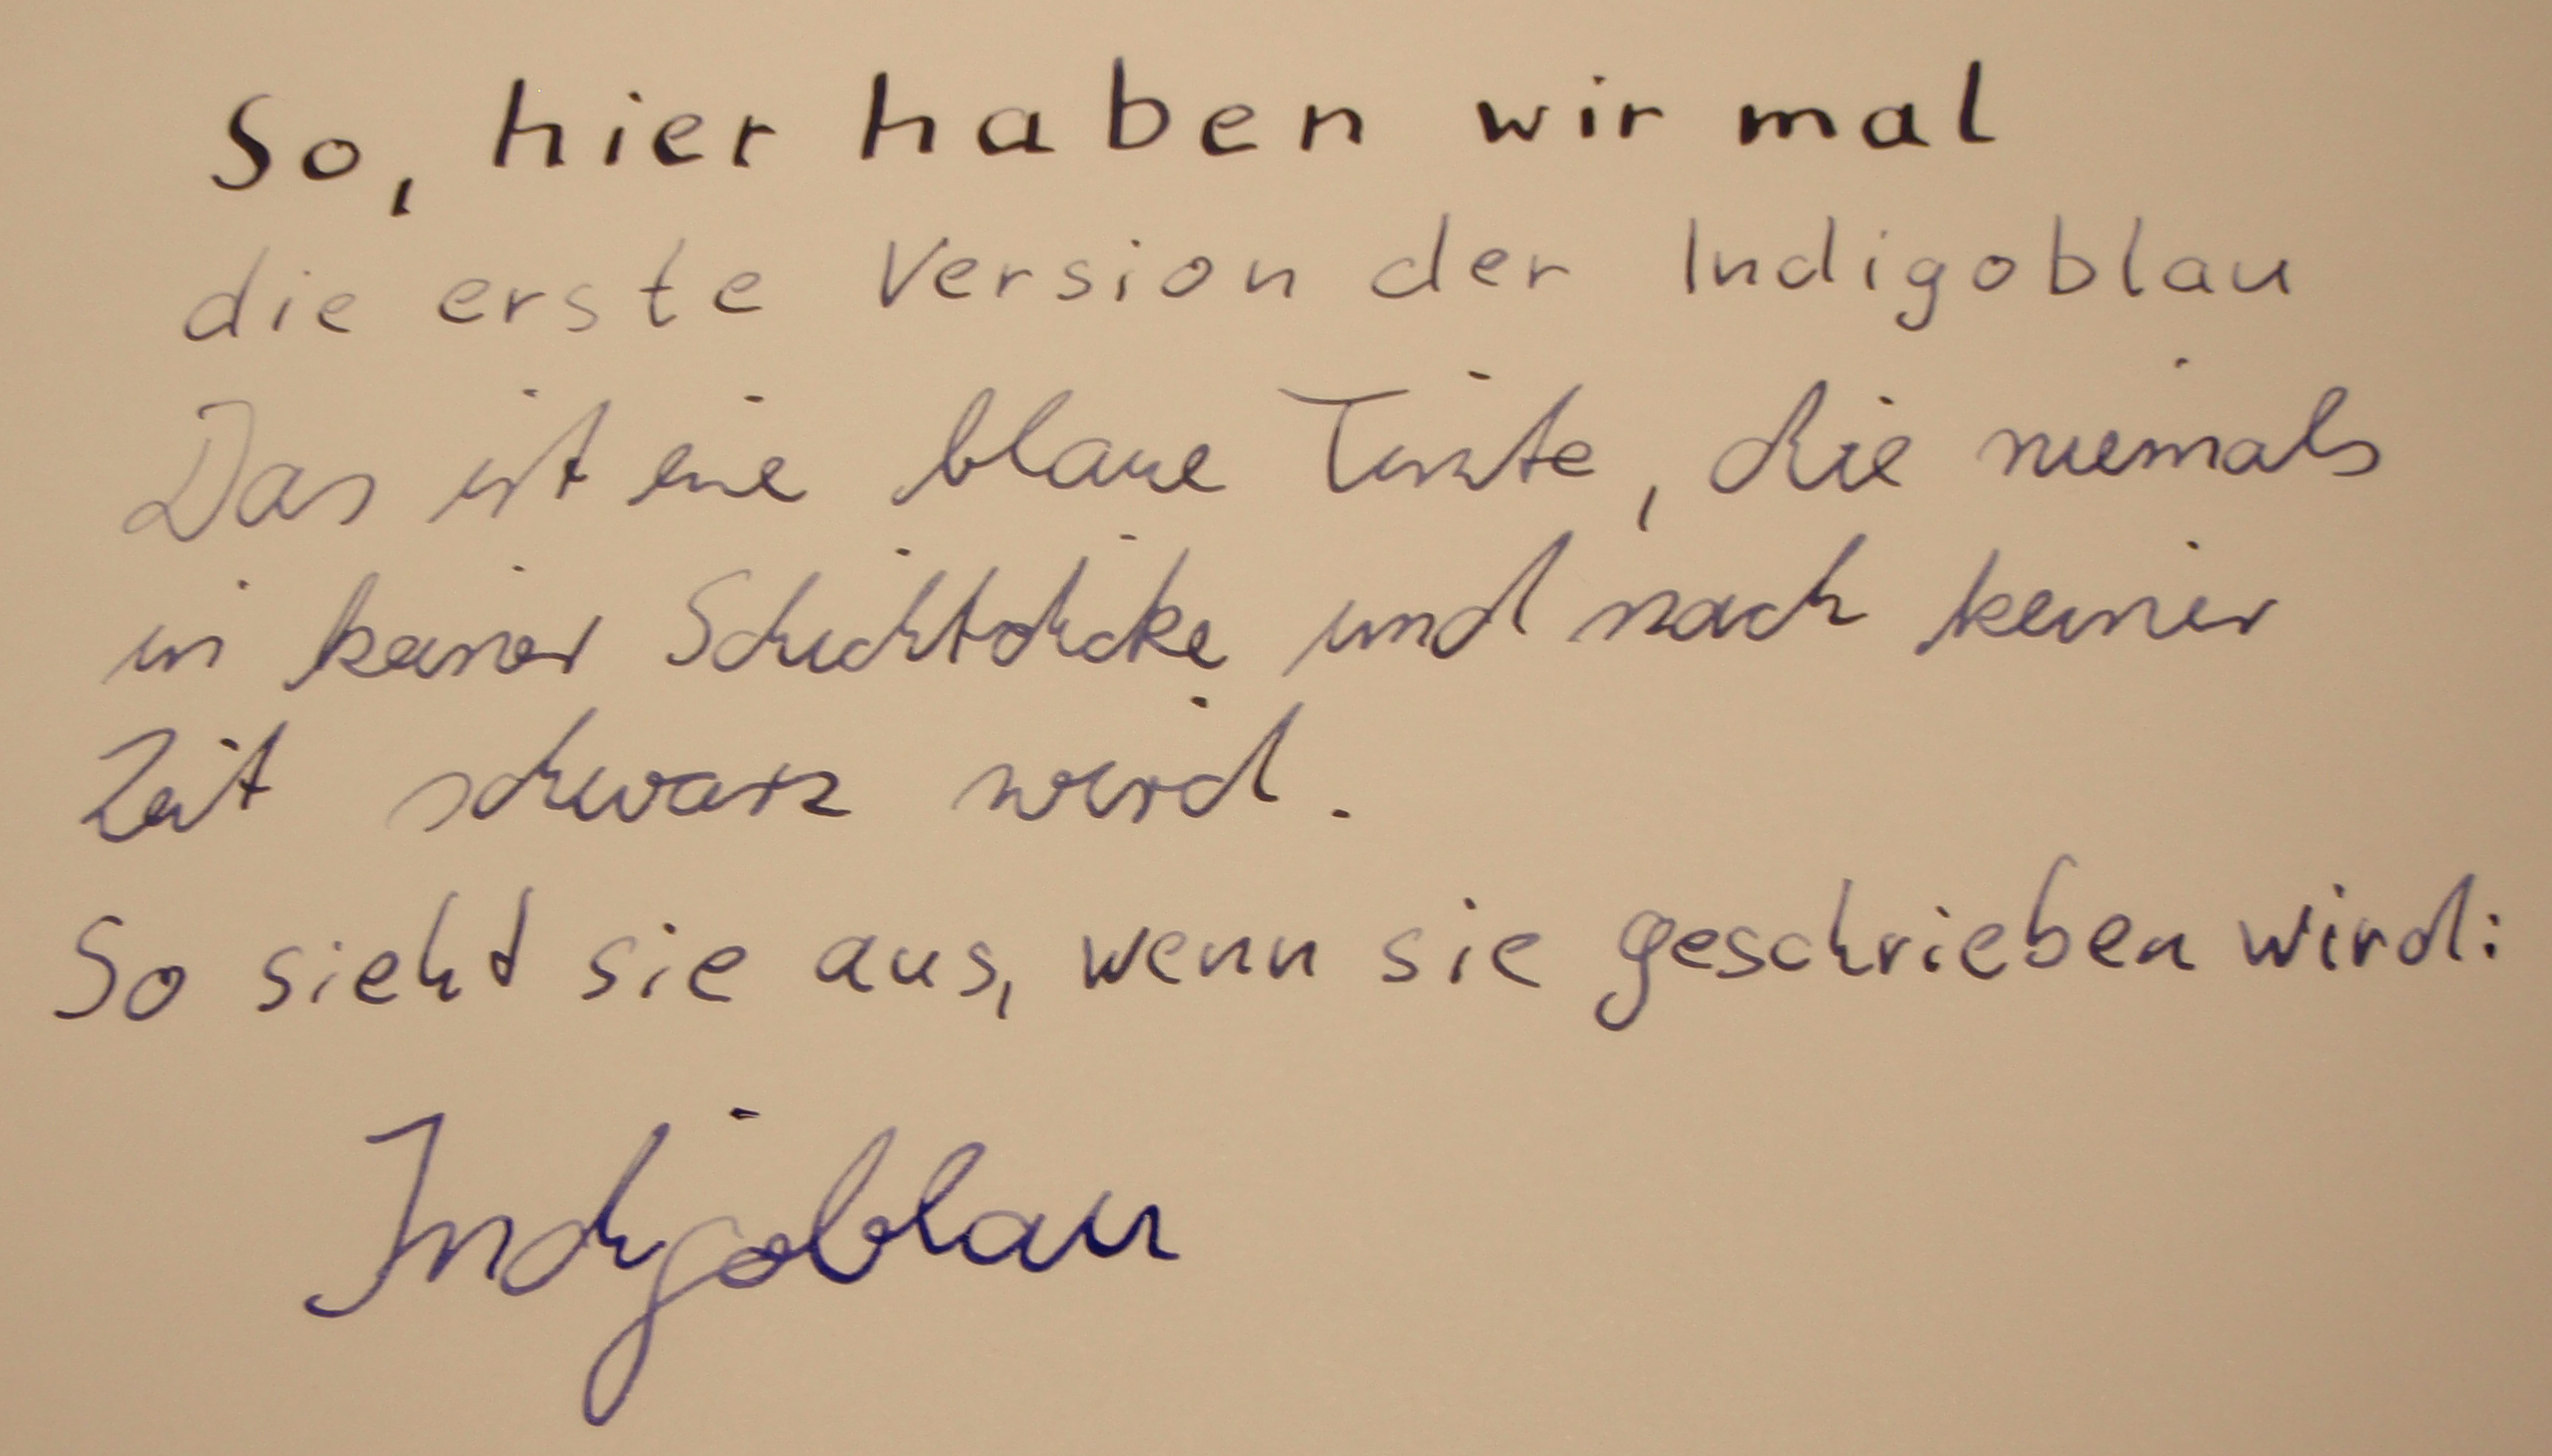 So, hier haben wir mal
die erste Version der Indigoblau
Das ist eine blaue Tinte, die niemals
in keiner Schichtdicke und nach keiner
Zeit schwarz wird.
So sieht sie aus, wenn sie geschrieben wird:
Indigoblau